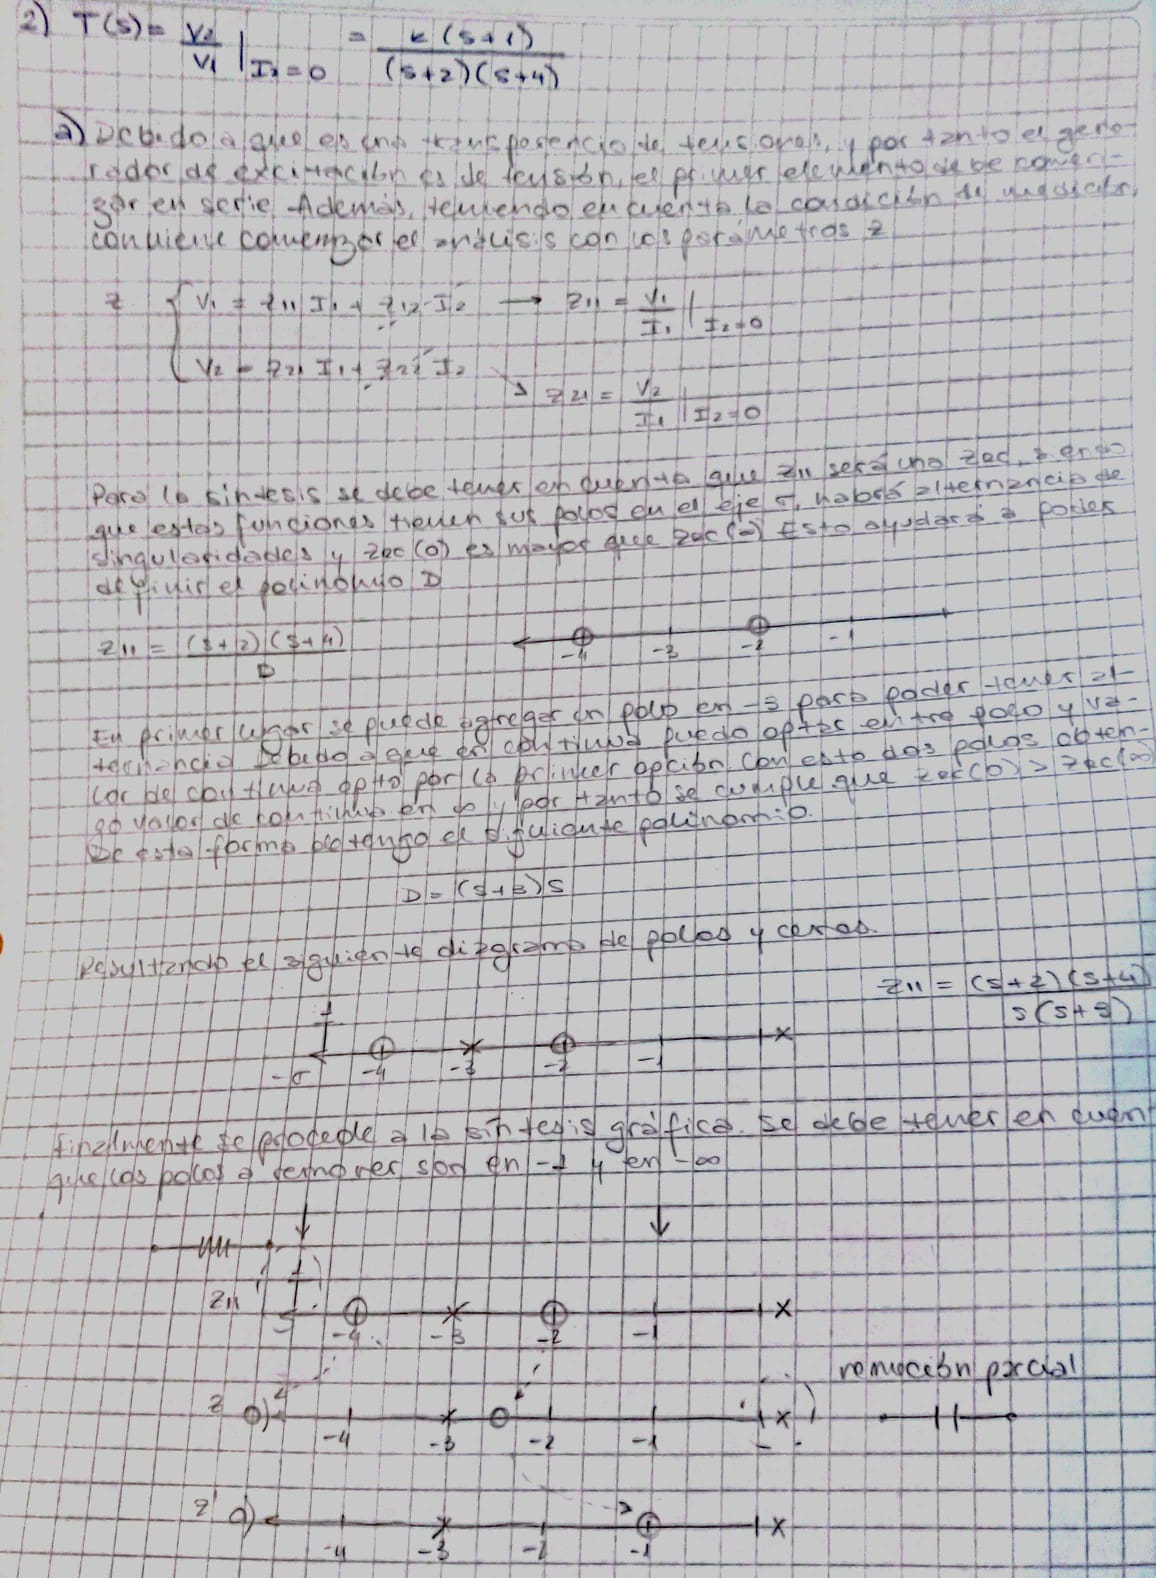 2) T(s) = V2/V1 | I2=0 = k (s+1) / (s+2)(s+4)
a) Debido a que es una transferencia de tensiones, y por tanto el gene-
rador de excitación es de tensión, el primer elemento debe comen-
zar en serie. Además, teniendo en cuenta la condición de medición,
conviene comenzar el análisis con los parámetros z
z { V1 = z11 I1 + z12 I2 → z11 = V1/I1 | I2=0
V2 = z21 I1 + z22 I2 ↘ z21 = V2/I1 | I2=0
Para la síntesis se debe tener en cuenta que z11 será una zRC,
que estas funciones tienen sus polos en el eje σ, habrá alternancia de
singularidades y zRC(0) es mayor que zRC(∞) Esto ayudará a poder
definir el polinomio D
z11 = (s+2)(s+4) / D
-4 -3 -2 -1
En primer lugar se puede agregar un polo en -3 para poder tener al-
ternancia Debido a que en continua puedo optar entre polo y va-
lor de continua opto por la primer opción. Con esto dos polos obten-
go valor de continua en ∞ y por tanto se cumple que zRC(0) > zRC(∞)
De esta forma obtengo el siguiente polinomio.
D = (s+3)s
Resultando el siguiente diagrama de polos y ceros.
z11 = (s+2)(s+4) / s(s+3)
-σ -4 -3 -2 -1
Finalmente se procede a la síntesis gráfica. Se debe tener en cuen
que los polos a remover son en -1 y en -∞
z11
-4 -3 -2 -1
remoción parcial
z
-4 -3 -2 -1
z'
-4 -3 -2 -1